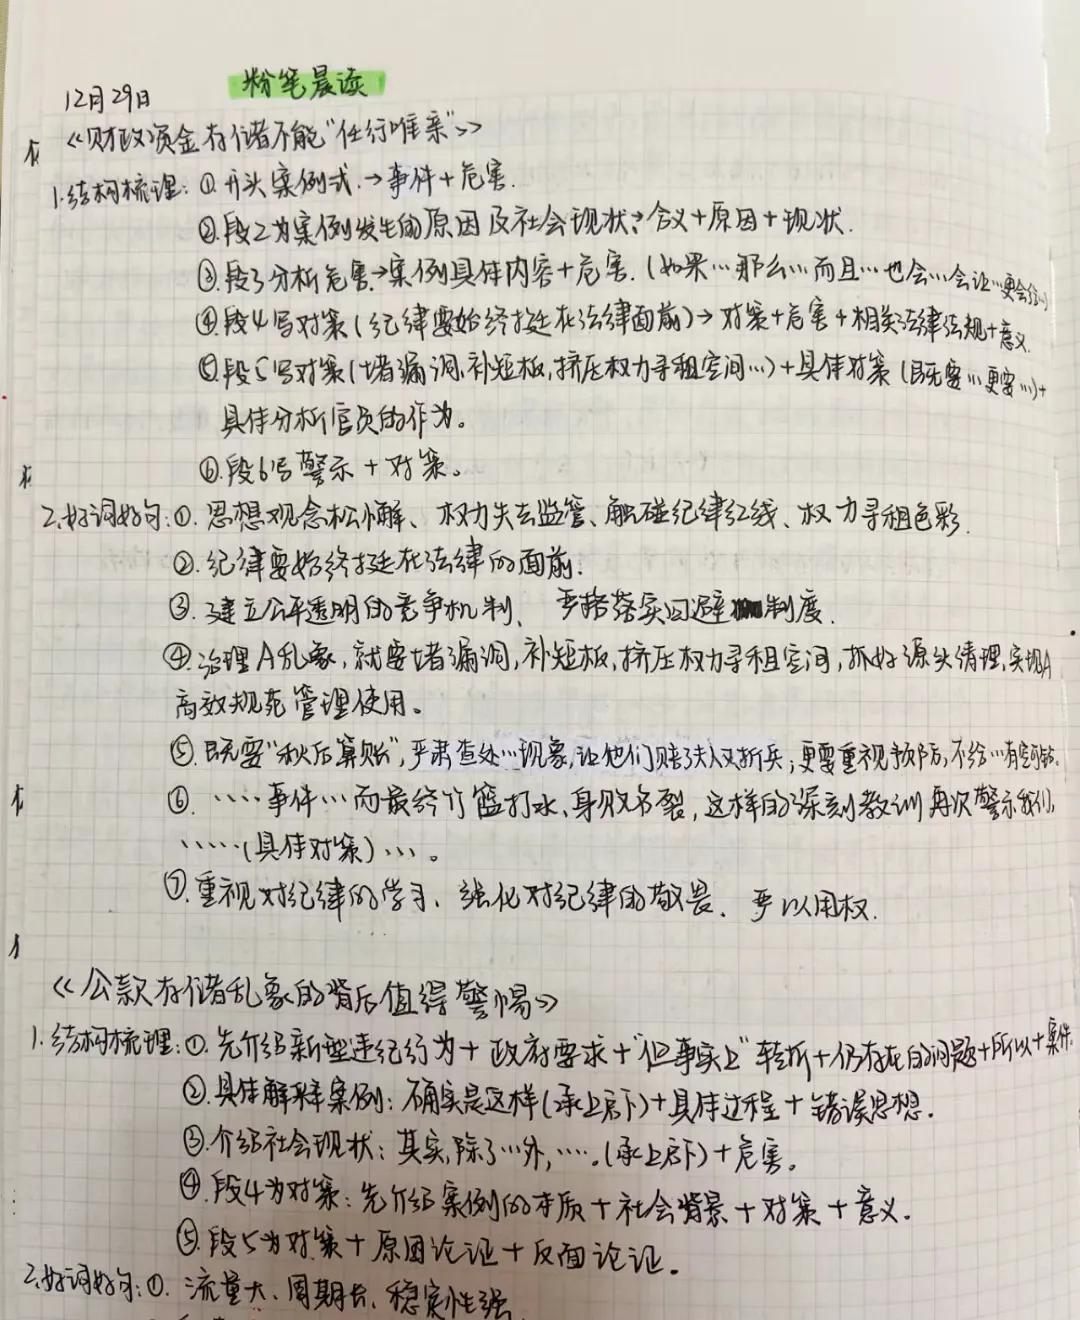 粉笔晨读
12月29日
《财政资金存储不能"任行唯亲"》
1.结构梳理：①开头案例式.→事件+危害.
②段2为案例发生的原因及社会现状：含义+原因+现状.
③段3分析危害→案例具体内容+危害.(如果…那么…而且…也会…会让…更会给…)
④段4写对策(纪律要始终挺在法律面前)→对策+危害+相关法律法规+意义.
⑤段5写对策(堵漏洞,补短板,挤压权力寻租空间…)+具体对策(既要…更要…)+
具体分析官员的作为。
⑥段6写警示+对策。
2.好词好句：①.思想观念松懈、权力失去监管、触碰纪律红线、权力寻租色彩.
②.纪律要始终挺在法律的面前.
③.建立公平透明的竞争机制、严格落实回避制度.
④.治理A乱象,就要堵漏洞,补短板,挤压权力寻租空间,抓好源头清理,实现A
高效规范管理使用。
⑤.既要"秋后算账",严肃查处…现象,让他们赔了夫人又折兵;更要重视预防,不给…有空可钻.
⑥.……事件…而最终竹篮打水、身败名裂,这样的深刻教训再次警示我们,
……(具体对策)…。
⑦.重视对纪律的学习、强化对纪律的敬畏、严以用权.
《公款存储乱象的背后值得警惕》
1.结构梳理：①.先介绍新型违纪行为+政府要求+"但事实上"转折+仍存在的问题+所以+案件.
②.具体解释案例：确实是这样(承上启下)+具体过程+错误思想.
③.介绍社会现状：其实,除了…外,….(承上启下)+危害。
④.段4为对策：先介绍案例的本质+社会背景+对策+意义.
⑤.段5为对策+原因论证+反面论证.
2.好词好句：①.流量大、周期长、稳定性强